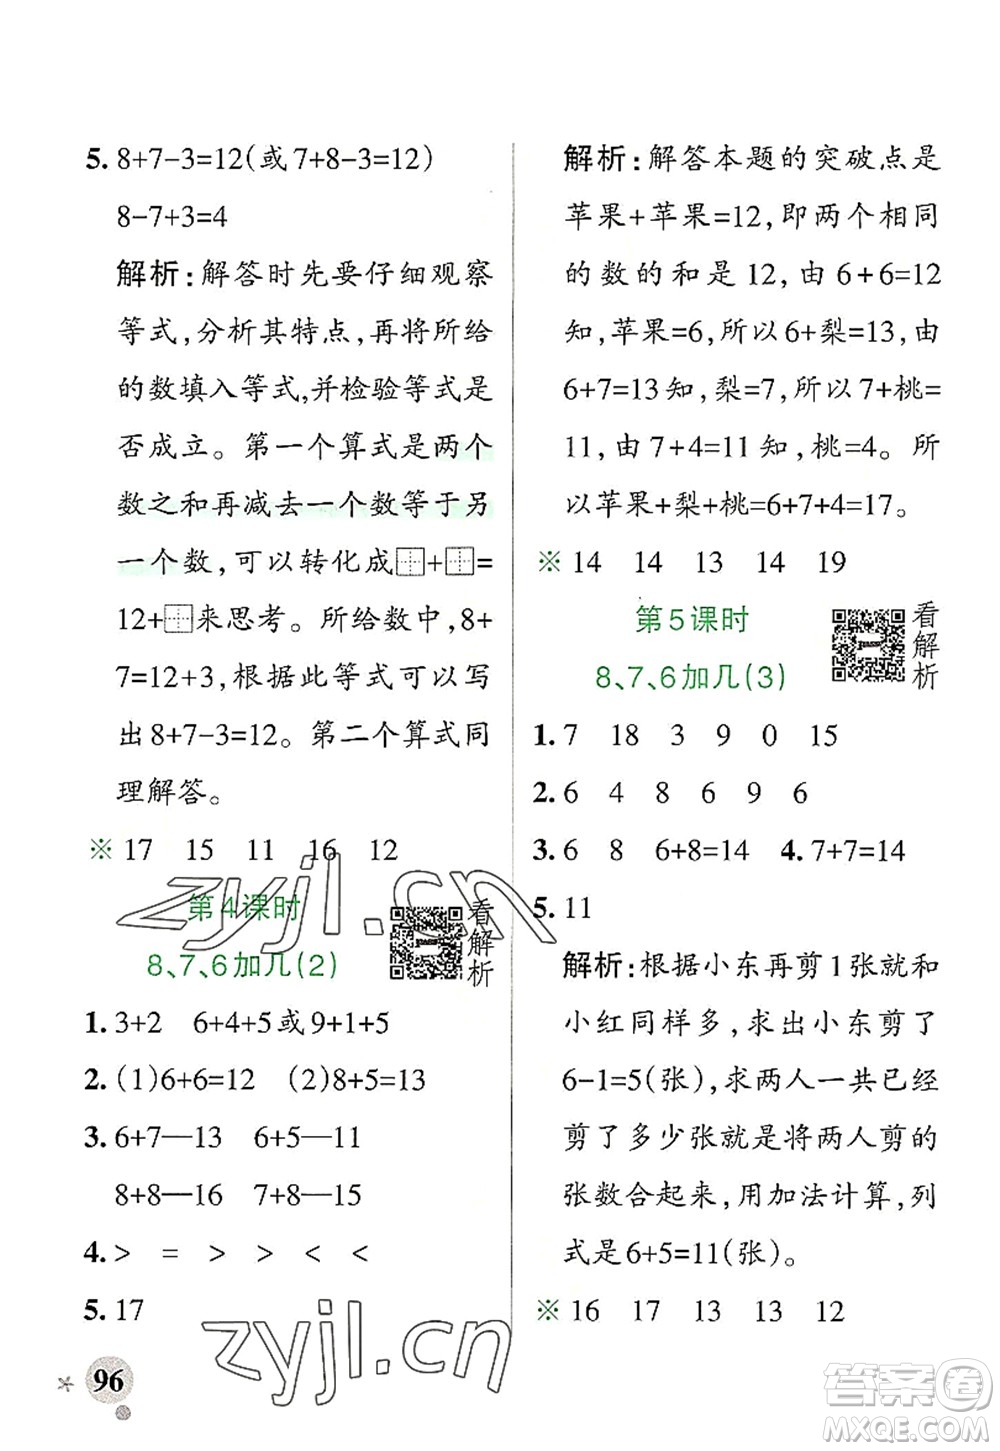 5. 8+7-3=12(或7+8-3=12)
8-7+3=4
解析:解答时先要仔细观察
等式,分析其特点,再将所给
的数填入等式,并检验等式是
否成立。第一个算式是两个
数之和再减去一个数等于另
一个数,可以转化成□+□=
12+□来思考。所给数中,8+
7=12+3,根据此等式可以写
出8+7-3=12。第二个算式同
理解答。
※ 17 15 11 16 12
第4课时
8、7、6加几(2)
看解析
1. 3+2 6+4+5或9+1+5
2. (1)6+6=12 (2)8+5=13
3. 6+7—13 6+5—11
8+8—16 7+8—15
4. > = > > < <
5. 17
96
解析:解答本题的突破点是
苹果+苹果=12,即两个相同
的数的和是12,由6+6=12
知,苹果=6,所以6+梨=13,由
6+7=13知,梨=7,所以7+桃=
11,由7+4=11知,桃=4。所
以苹果+梨+桃=6+7+4=17。
※ 14 14 13 14 19
第5课时
8、7、6加几(3)
看解析
1. 7 18 3 9 0 15
2. 6 4 8 6 9 6
3. 6 8 6+8=14 4. 7+7=14
5. 11
解析:根据小东再剪1张就和
小红同样多,求出小东剪了
6-1=5(张),求两人一共已经
剪了多少张就是将两人剪的
张数合起来,用加法计算,列
式是6+5=11(张)。
※ 16 17 13 13 12
zyjl.cn
zyjl.cn
答案圈
MXQE.COM